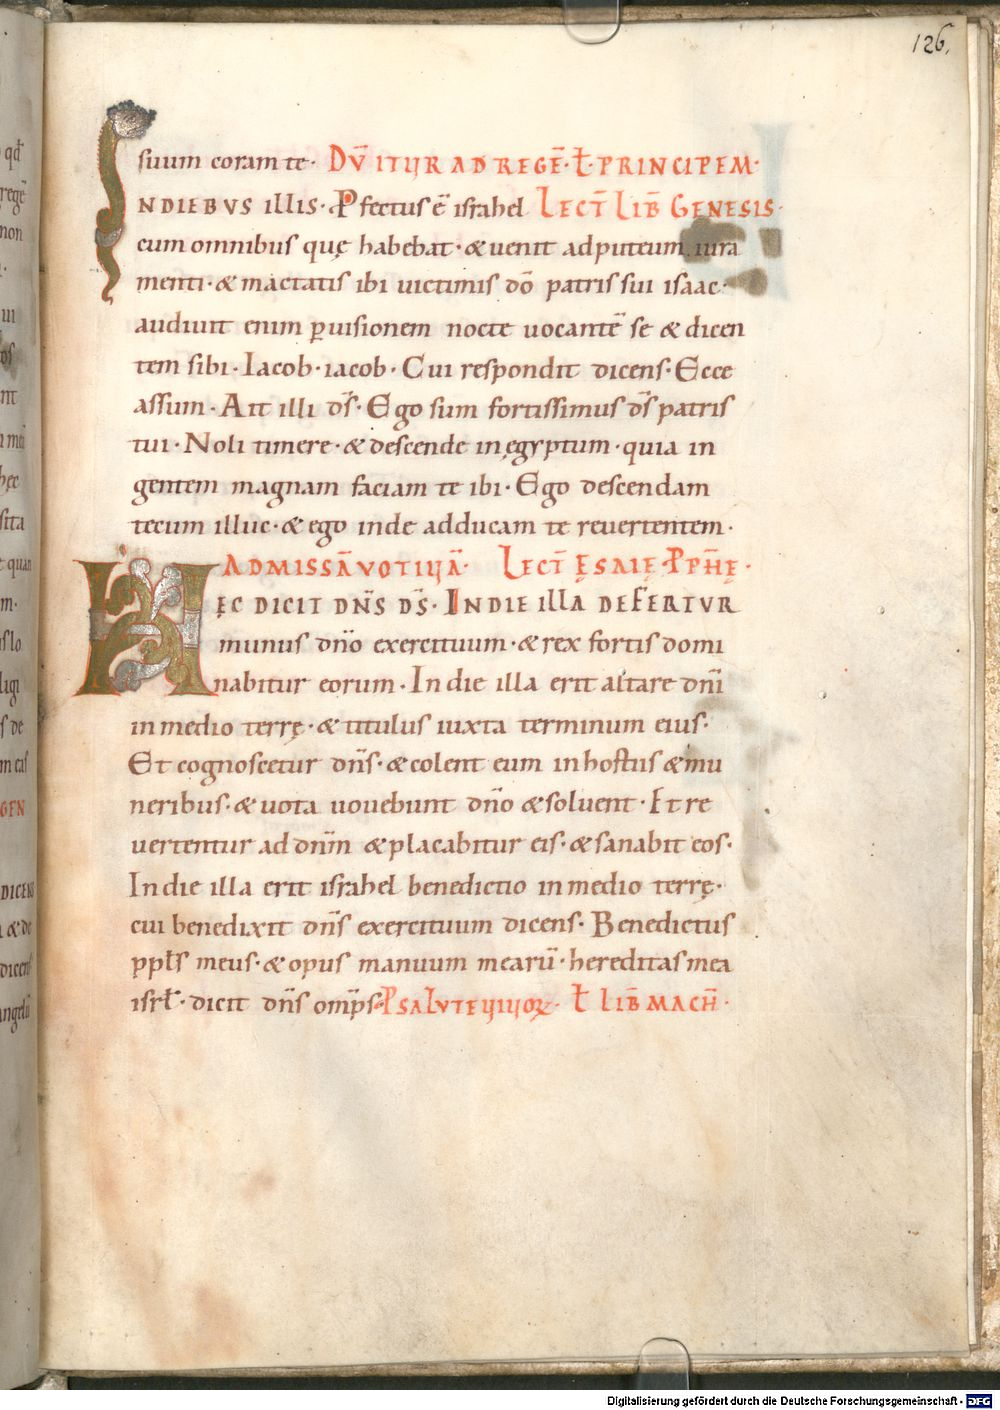 126.
suum coram te · DŪ ITUR AD REGĒ · ł PRINCIPEM ·
INDIEBUS illis · Pfectus ē israhel LECT̄ LIB̄ GENESIS ·
cum omnibus quę habebat · & uenit ad puteum iura
menti · & mactatis ibi uictimis dō patris sui isaac ·
audiuit enim ꝑ uisionem nocte uocantē se & dicen
tem sibi · Iacob · iacob · Cui respondit dicens · Ecce
assum · Ait illi d̄s · Ego sum fortissimus d̄s patris
tui · Noli timere · & descende in ęgyptum · quia in
gentem magnam faciam te ibi · Ego descendam
tecum illuc · & ego inde adducam te reuertentem ·
AD MISSĀ VOTIUĀ · LECT̄ ĘSAIĘ PPH̄Ę ·
HĘC DICIT DN̄S D̄S · IN DIE illA DEFERTUR
munus dn̄o exercituum · & rex fortis domi
nabitur eorum · In die illa erit altare dn̄i
in medio terrę · & titulus iuxta terminum eius ·
Et cognoscetur dn̄s · & colent eum in hostiis & mu
neribus · & uota uouebunt dn̄o & soluent · Et re
uertentur ad dn̄m & placabitur eis · & sanabit eos ·
In die illa erit israhel benedictio in medio terrę ·
cui benedixit dn̄s exercituum dicens · Benedictus
ppl̄s meus · & opus manuum mearū · hereditas mea
isrl̄ · dicit dn̄s omp̄s · P SALUTE UIUOꝜ · ł LIB̄ MACH̄ ·
Digitalisierung gefördert durch die Deutsche Forschungsgemeinschaft - DFG